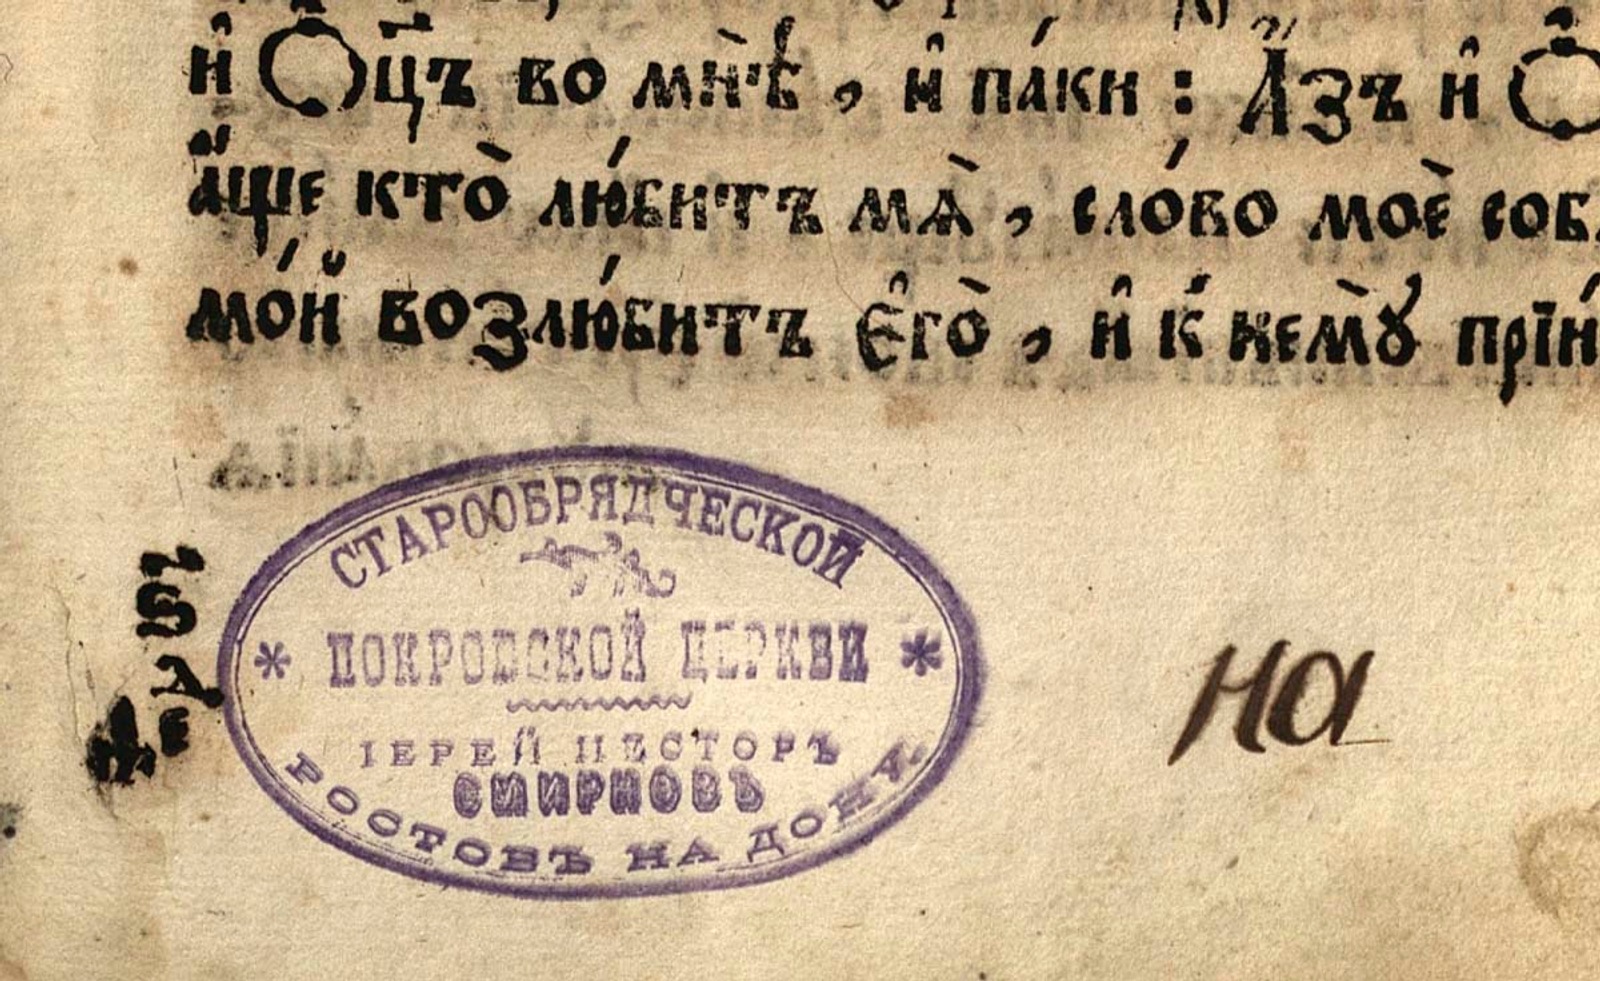 и҆ Ѻ҆ц҃ъ во мнѣ̀, и҆ па́ки: А҆́зъ и҆ Ѻ҆
а҆́ще кто̀ лю́битъ мѧ̀, сло́во моѐ соб
мо́й возлю́битъ є҆го̀, и҆ к нємꙋ̀ прїи́
СТАРООБРЯДЧЕСКОЙ
* ПОКРОВСКОЙ ЦЕРКВИ *
ІЕРЕЙ НЕСТОРЪ
СМИРНОВЪ
РОСТОВЪ НА ДОНУ.
на